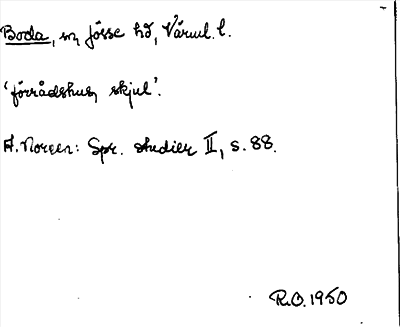 Boda, sn, Jösse hd, Värml. l.
'förrådshus, skjul'.
A. Noreen: Spr. studier II, s. 88.
R.O. 1950